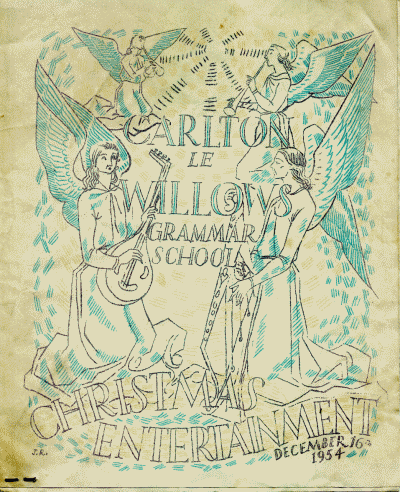 CARLTON
LE
WILLOWS
GRAMMAR
SCHOOL
CHRISTMAS
ENTERTAINMENT
DECEMBER 16
1954